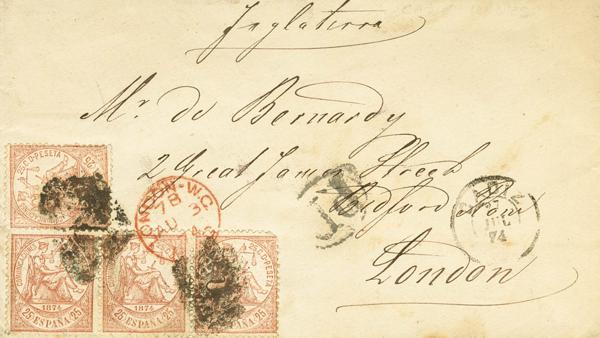 Inglaterra
Mr. de Bernardy
2 Great James Street
Bedford Row
London
LONDON-W.C
7B
AU
74
25 C. DE PESETA
1874
25 ESPAÑA 25
1874
25 ESPAÑA 25
25 ESPAÑA 25
JUL
74